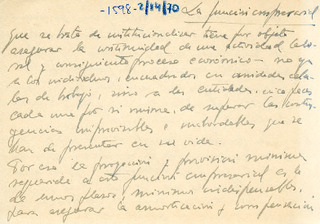 -1598-2/14/70
La función empresarial
que se trata de institucionalizar tiene por objeto
asegurar la continuidad de una actividad labo-
ral y consiguiente proceso económico no ya
a los individuos, encuadrados en unidades
de trabajo, sino a las entidades,
cada una por si misma, de superar las contin-
gencias imprevisibles e inevitables que se
han de presentar en su vida.
Por eso la proyección y provisiones mínimas
requeridas a esta función empresarial es la
de unos plazos mínimos indispensables.
para asegurar la amortización y